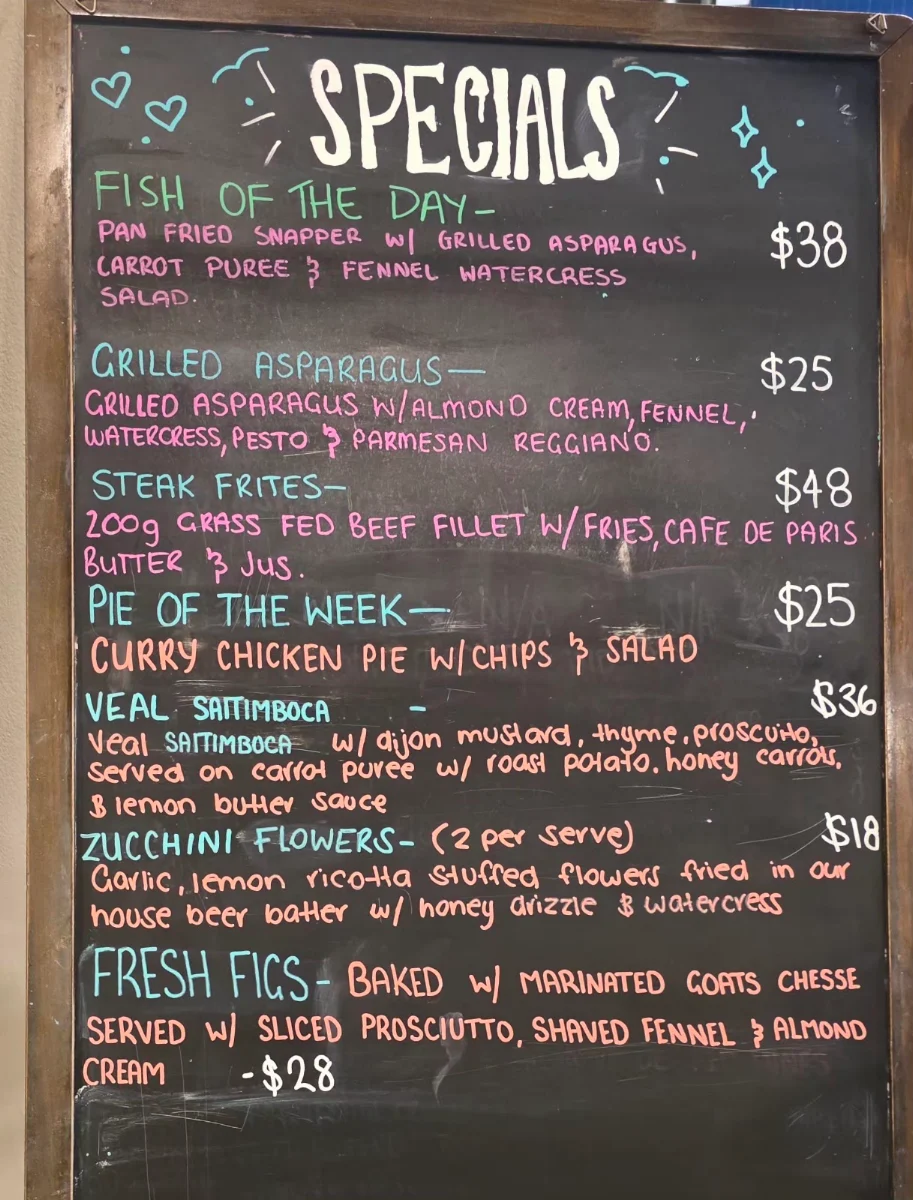 SPECIALS
FISH OF THE DAY-
PAN FRIED SNAPPER W/ GRILLED ASPARAGUS, $38
CARROT PUREE & FENNEL WATERCRESS
SALAD.
GRILLED ASPARAGUS- $25
GRILLED ASPARAGUS W/ALMOND CREAM, FENNEL,
WATERCRESS, PESTO & PARMESAN REGGIANO.
STEAK FRITES- $48
200g GRASS FED BEEF FILLET W/FRIES, CAFE DE PARIS
BUTTER & JUS.
PIE OF THE WEEK- $25
CURRY CHICKEN PIE W/CHIPS & SALAD
VEAL SAITIMBOCA - $36
Veal SAITIMBOCA w/ dijon mustard, thyme, prosciutto,
served on carrot puree w/ roast potato, honey carrots,
& lemon butter sauce
ZUCCHINI FLOWERS- (2 per serve) $18
Garlic, lemon ricotta stuffed flowers fried in our
house beer batter w/ honey drizzle & watercress
FRESH FIGS- BAKED W/ MARINATED GOATS CHESSE
SERVED W/ SLICED PROSCIUTTO, SHAVED FENNEL & ALMOND
CREAM -$28